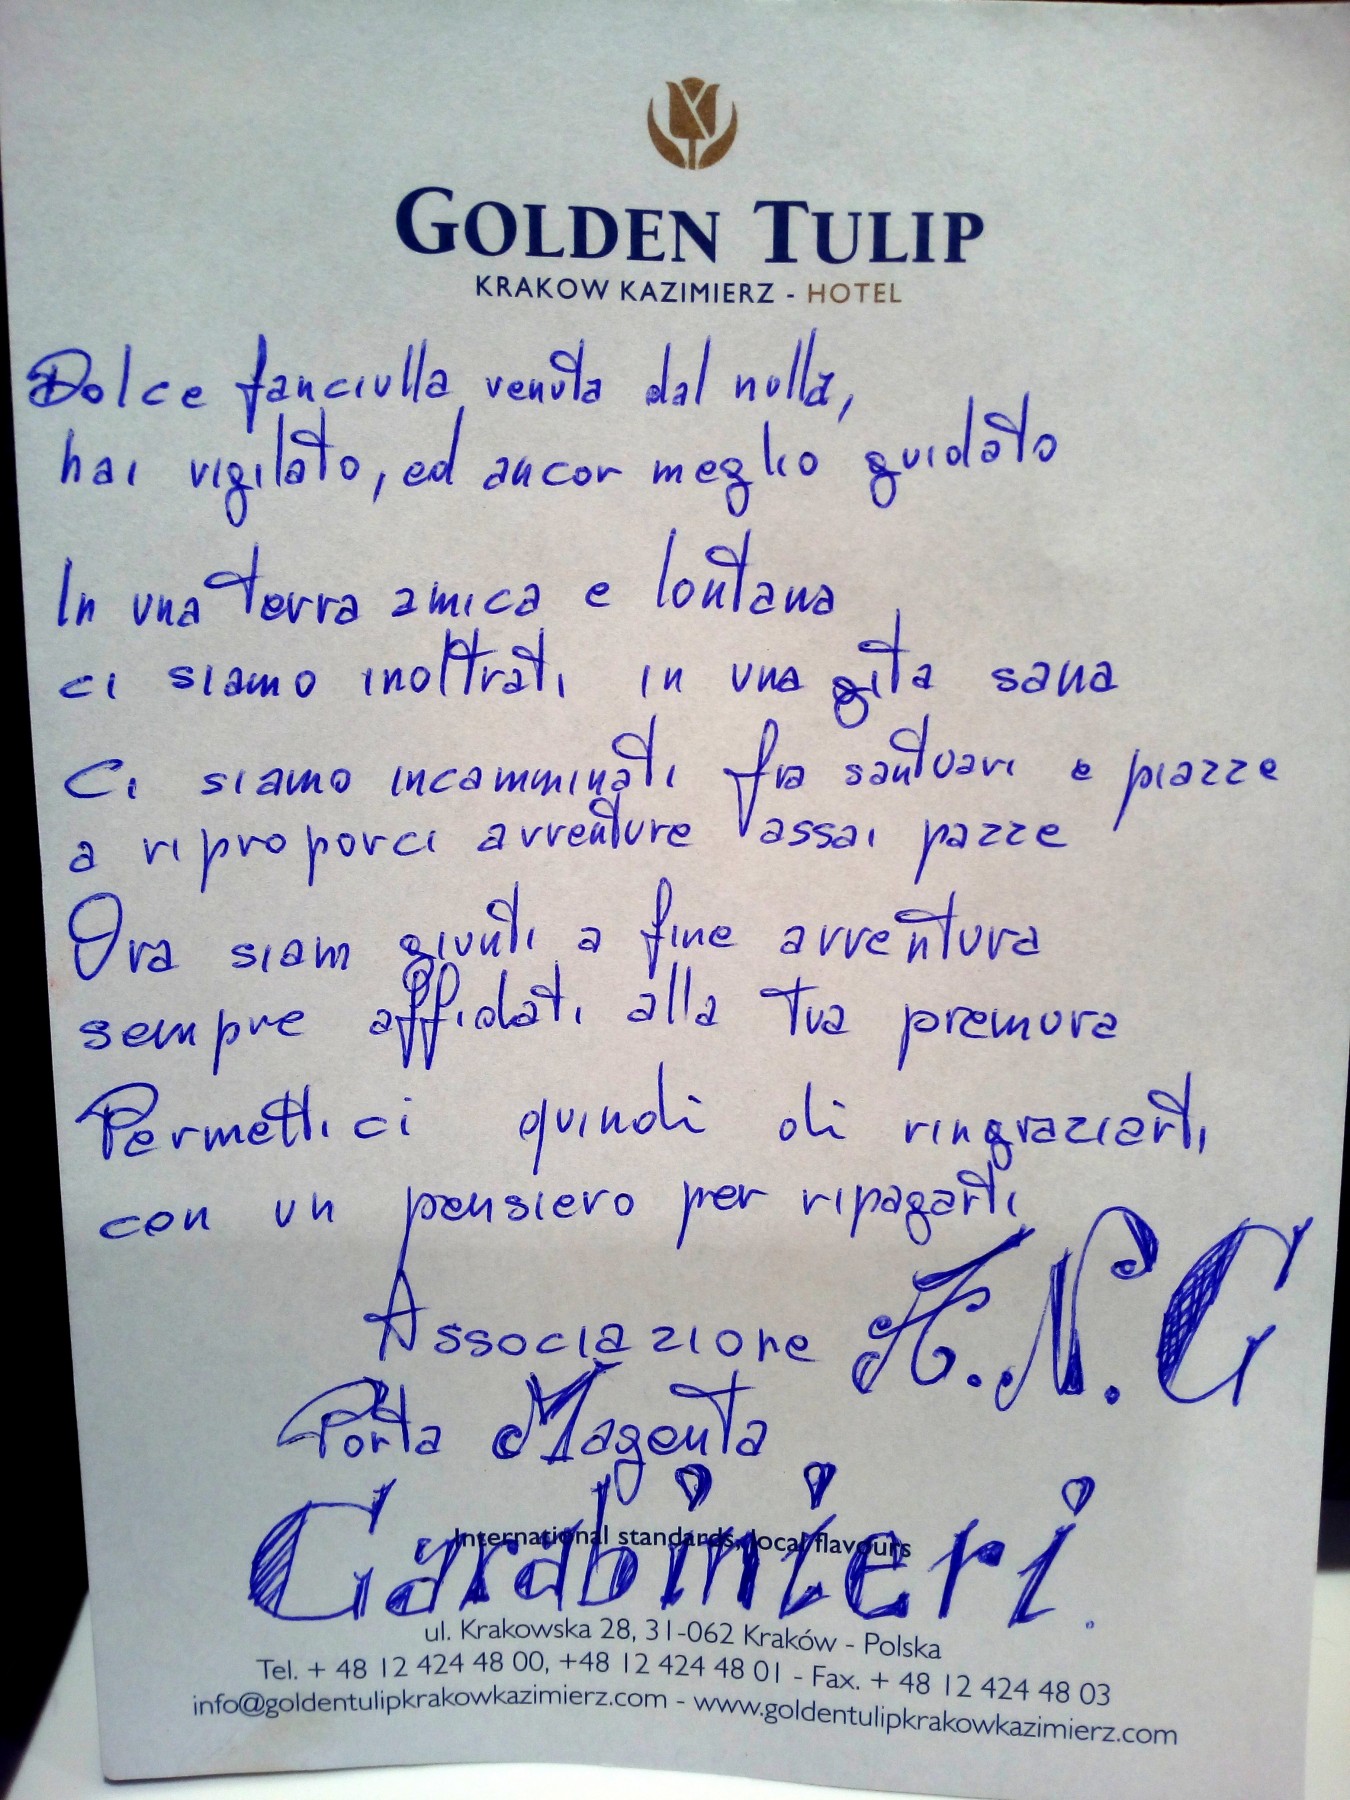 GOLDEN TULIP
KRAKOW KAZIMIERZ - HOTEL
Dolce fanciulla venuta dal nulla,
hai vigilato, ed ancor meglio guidato
In una terra amica e lontana
ci siamo inoltrati in una gita sana
Ci siamo incamminati fra santuari e piazze
a riproporci avventure assai pazze
Ora siam giunti a fine avventura
sempre affidati alla tua premura
Permettici quindi di ringraziarti
con un pensiero per ripagarti
Associazione A.N.C
Porta Magenta
Carabinieri.
International standards, local flavours
ul. Krakowska 28, 31-062 Kraków - Polska
Tel. + 48 12 424 48 00, +48 12 424 48 01 - Fax. + 48 12 424 48 03
info@goldentulipkrakowkazimierz.com - www.goldentulipkrakowkazimierz.com